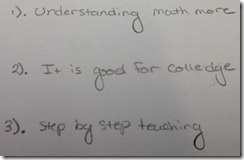 1). Understanding math more
2). It is good for colledge
3). Step by step teaching